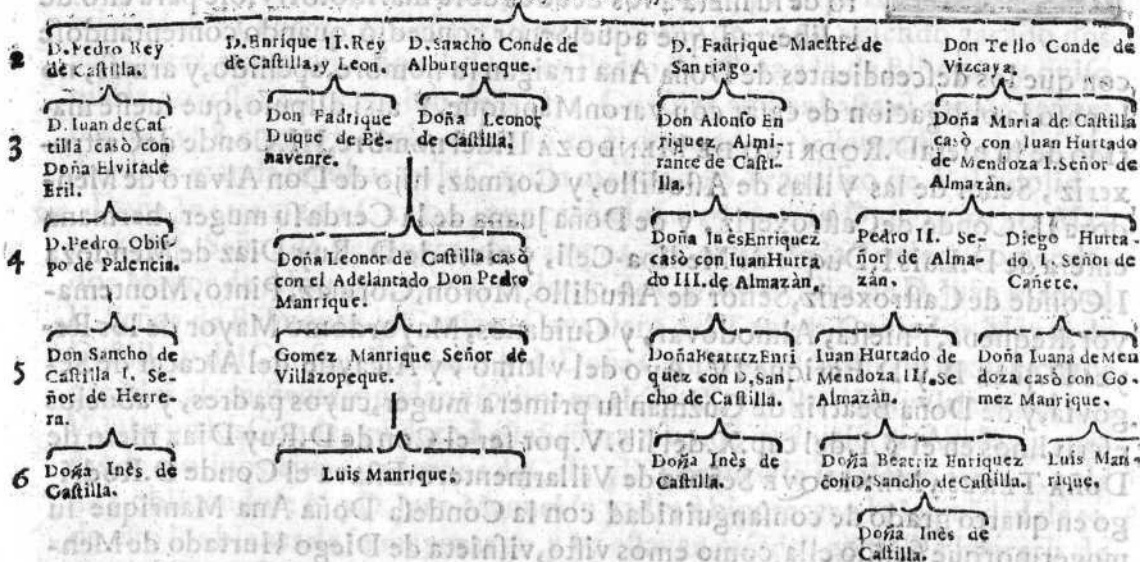 2
D. Pedro Rey
de Caſtilla.
D. Enrique II. Rey
de Caſtilla, y Leon.
D. Sancho Conde de
Alburquerque.
D. Fadrique Maeſtre de
Santiago.
Don Tello Conde de
Vizcaya.
3
D. Iuan de Caſ
tilla casò con
Doña Elvira de
Eril.
Don Fadrique
Duque de Be-
navente.
Doña Leonor
de Caſtilla.
Don Alonſo En
riquez Almi-
rante de Caſti-
lla.
Doña Maria de Caſtilla
casò con Iuan Hurtado
de Mendoza I. Señor de
Almazàn.
4
D. Pedro Obiſ-
po de Palencia.
Doña Leonor de Caſtilla casò
con el Adelantado Don Pedro
Manrique.
Doña Inès Enriquez
casò con Iuan Hurta
do III. de Almazàn.
Pedro II. Se-
ñor de Alma-
zàn.
Diego Hurta-
do I. Señor de
Cañete.
5
Don Sancho de
Caſtilla I. Se-
ñor de Herre-
ra.
Gomez Manrique Señor de
Villazopeque.
Doña Beatriz Enri
quez con D. San-
cho de Caſtilla.
Iuan Hurtado de
Mendoza III. Se
Almazàn.
Doña Iuana de Men
doza casò con Go-
mez Manrique.
6
Doña Inès de
Caſtilla.
Luis Manrique.
Doña Inès de
Caſtilla.
Doña Beatriz Enriquez
con D. Sancho de Caſtilla.
Luis Man-
rique.
Doña Inès de
Caſtilla.